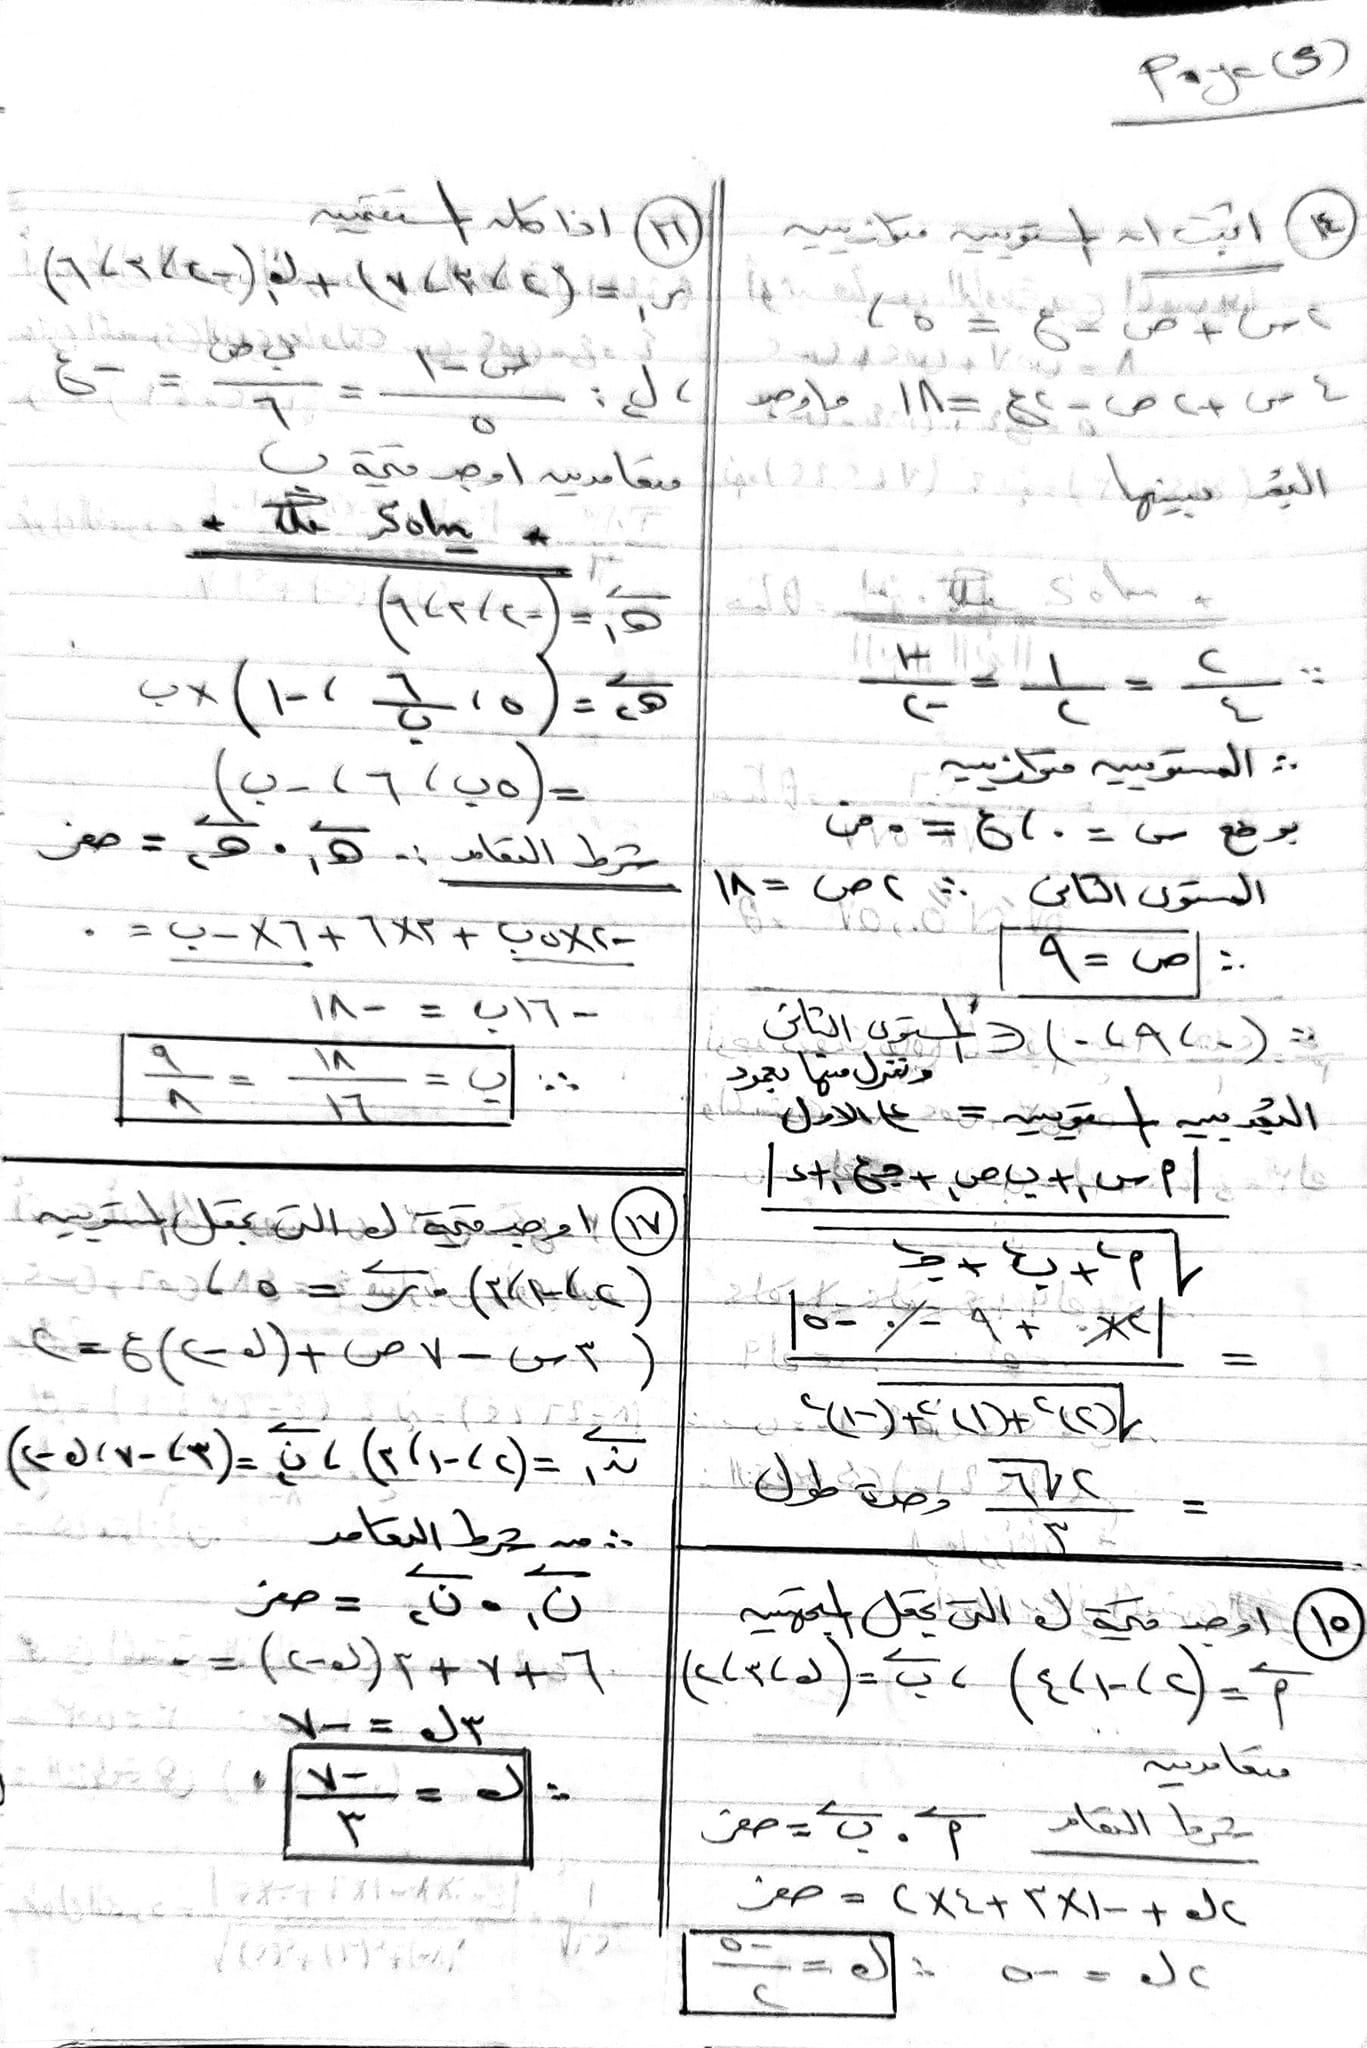 Page (5)
١٤ اثبت ان المستويين متوازيين
٢س + ص - ع = ٥ ،
٤س + ٢ص - ٢ع = ١٨ واوجد
البعد بينهما
The Soln *
∵ ٢/٤ = ١/٢ = -١/-٢
∴ المستويين متوازيين
بوضع س = ٠ ، ع = ٠ من
المستوى الثانى ∴ ٢ص = ١٨
∴ ص = ٩
∴ (٠، ٩، ٠) ∈ المستوى الثانى
وننزل منها عمود
البعد بين المستويين = ع الاول
|أس١ + ب ص١ + جـع١ + د|
√أ٢ + ب٢ + جـ٢
= |٢×٠ + ٩ - ٠ - ٥|
√(٢)٢ + (١)٢ + (-١)٢
= ٢√٦/٣ وحدة طول
١٥ اوجد قيمة ك التى تجعل المتجهين
أ = (٢، -١، ٤) ، ب = (ك، ٣، ٢)
متعامدين
شرط التعامد أ . ب = صفر
٢ك + -١×٣ + ٤×٢ = صفر
٢ك = -٥ ∴ ك = -٥/٢
١٦ اذا كان المستقيمين
س١ = (٢، ٣، ٧) + ك١(-٢، ٣، ٦)
، ل٢ : س-١/٥ = ب ص/٦ = -ع
متعامدين اوجد قيمة ب
* The Soln *
هـ١ = (-٢، ٣، ٦)
هـ٢ = (٥، ٦/ب، -١) × ب
= (٥ب، ٦، -ب)
شرط التعامد : هـ١ . هـ٢ = صفر
-٢×٥ب + ٣×٦ + ٦×-ب = ٠
-١٦ب = -١٨
∴ ب = ١٨/١٦ = ٩/٨
١٧ اوجد قيمة ك التى تجعل المستويين
(٢، -١، ٣) . ر = ٥ ،
(٣س - ٧ص + (ك-٢)ع = ٢
ن١ = (٢، -١، ٣) ، ن٢ = (٣، -٧، ك-٢)
∴ من شرط التعامد
ن١ . ن٢ = صفر
٦ + ٧ + ٣(ك-٢) = ٠
٣ك = -٧
∴ ك = -٧/٣